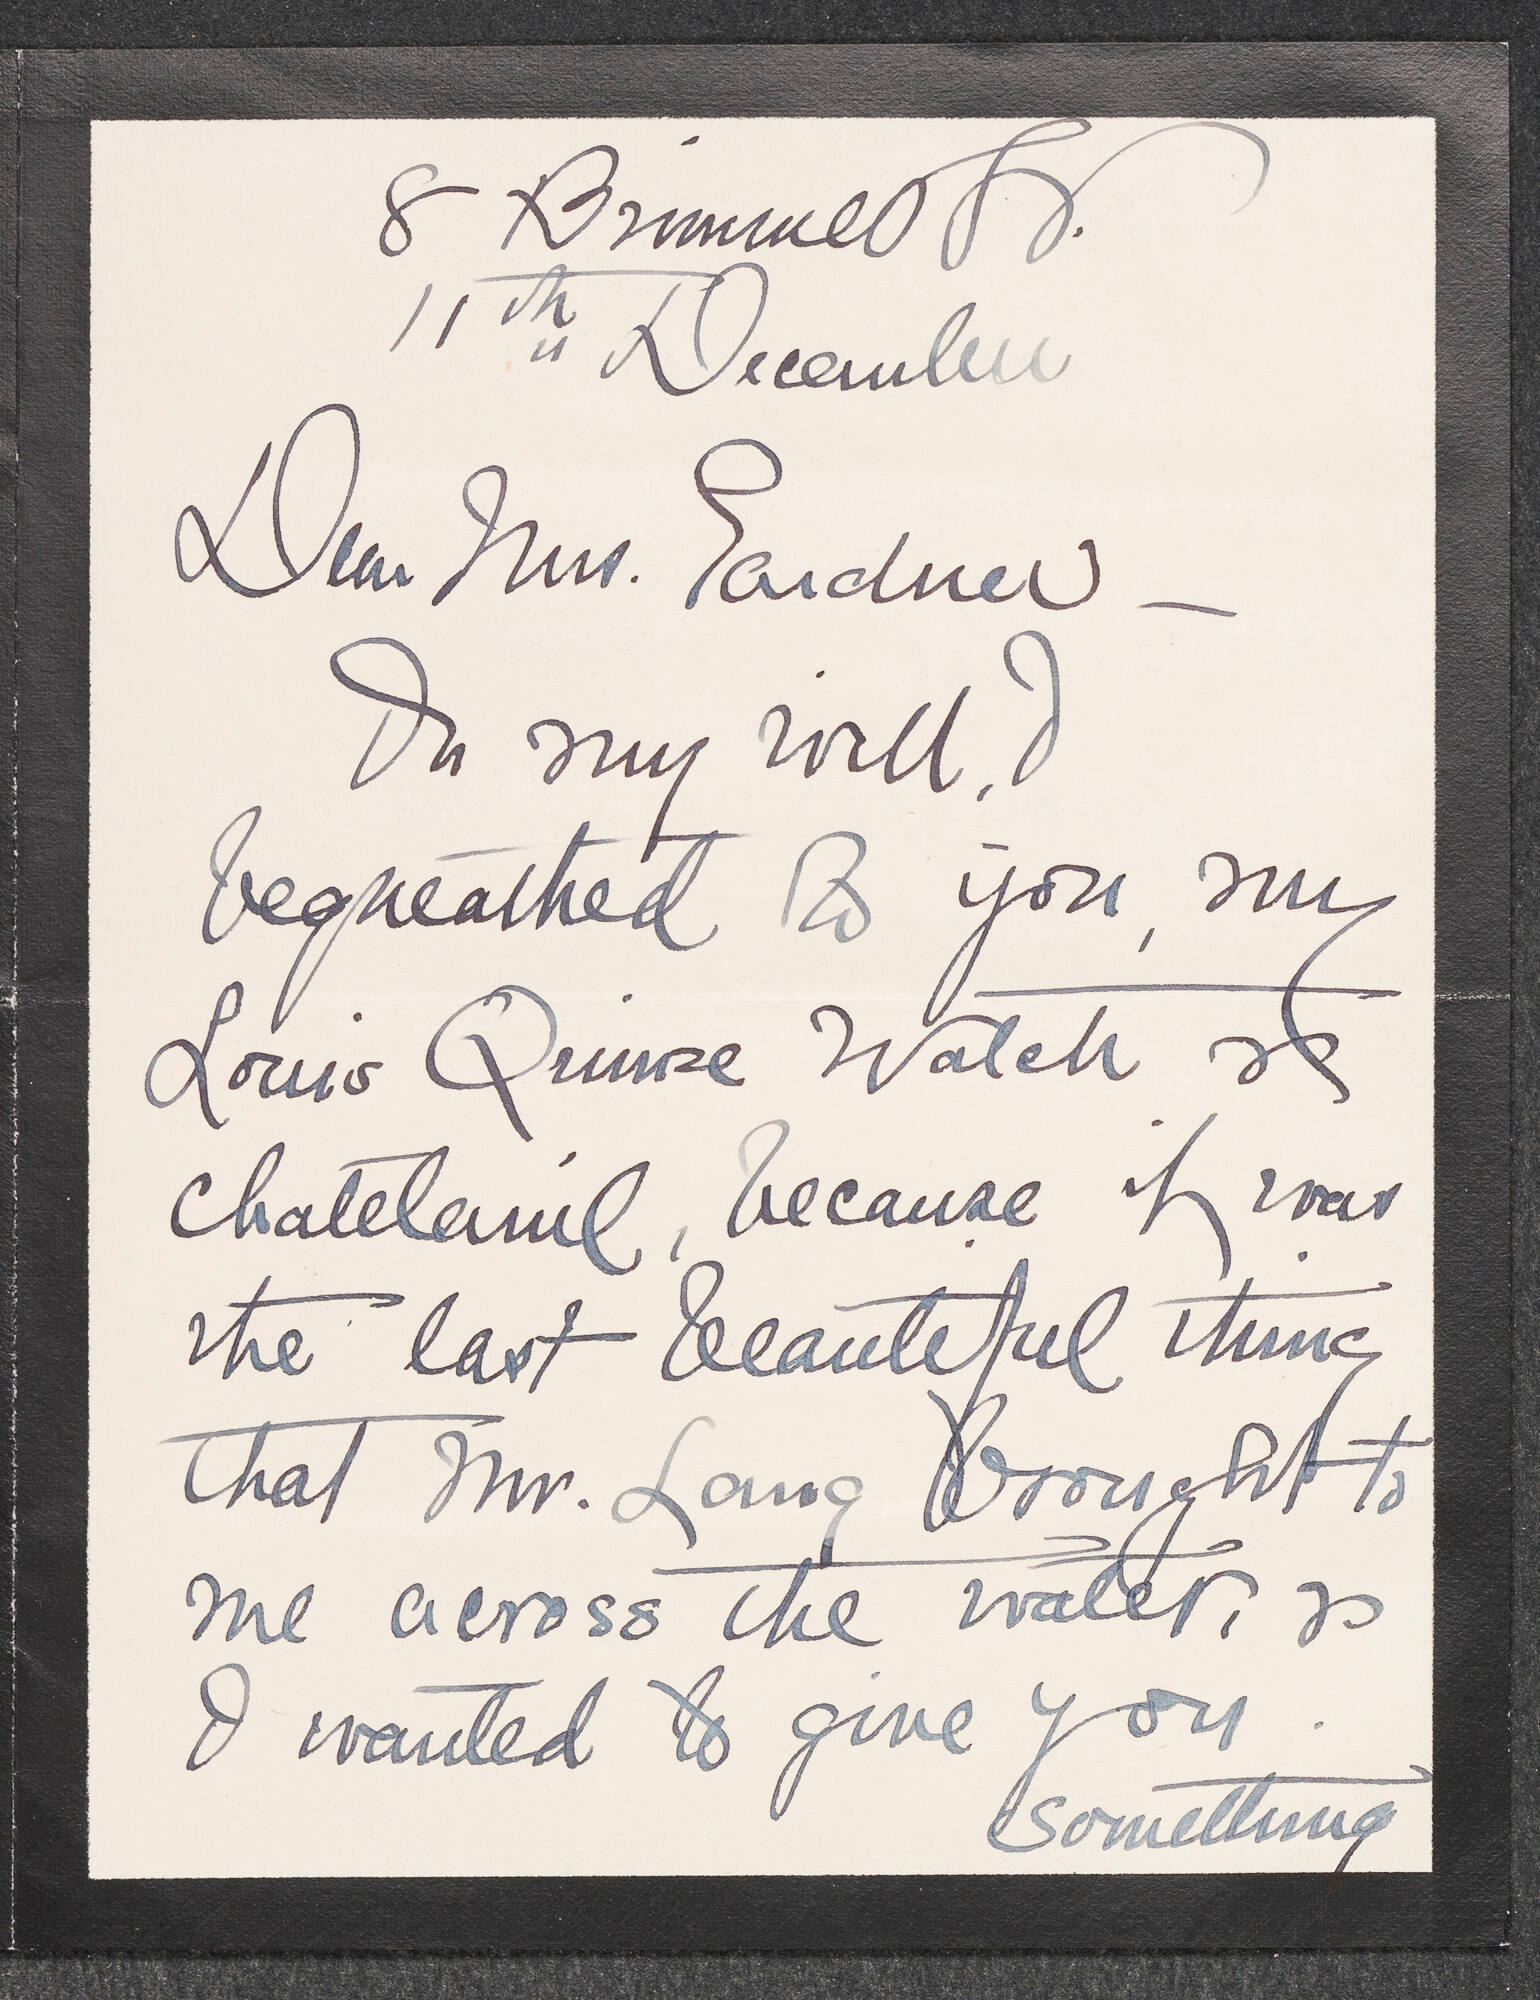 8 Brimmer St.
11th December
Dear Mrs. Gardner —
In my will, I
bequeathed to you, my
Louis Quinze Watch &
chatelaine, because it was
the last beautiful thing
that Mr. Lang brought to
me across the water, &
I wanted to give you.
something